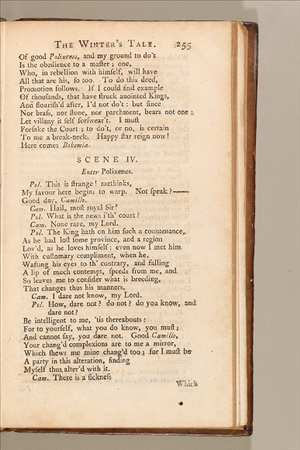 THE WINTER'S TALE. 255
Of good Polixenes, and my ground to do't
Is the obedience to a master; one,
Who, in rebellion with himself, will have
All that are his, so too. To do this deed,
Promotion follows. If I could find example
Of thousands, that have struck anointed Kings,
And flourish'd after, I'd not do't: but since
Nor brass, nor stone, nor parchment, bears not one;
Let villany it self forswear't. I must
Forsake the Court; to do't, or no, is certain
To me a break-neck. Happy star reign now!
Here comes Bohemia.
SCENE IV.
Enter Polixenes.
Pol. This is strange! methinks,
My favour here begins to warp. Not speak?——
Good day, Camillo.
Cam. Hail, most royal Sir!
Pol. What is the news i'th' court?
Cam. None rare, my Lord.
Pol. The King hath on him such a countenance,
As he had lost some province, and a region
Lov'd, as he loves himself: even now I met him
With customary compliment, when he,
Wafting his eyes to th' contrary, and falling
A lip of much contempt, speeds from me, and
So leaves me to consider what is breeding,
That changes thus his manners.
Cam. I dare not know, my Lord.
Pol. How, dare not? do not? do you know, and
dare not?
Be intelligent to me, 'tis thereabouts:
For to yourself, what you do know, you must;
And cannot say, you dare not. Good Camillo,
Your chang'd complexions are to me a mirror,
Which shews me mine chang'd too; for I must be
A party in this alteration, finding
Myself thus alter'd with it.
Cam. There is a sickness
Which